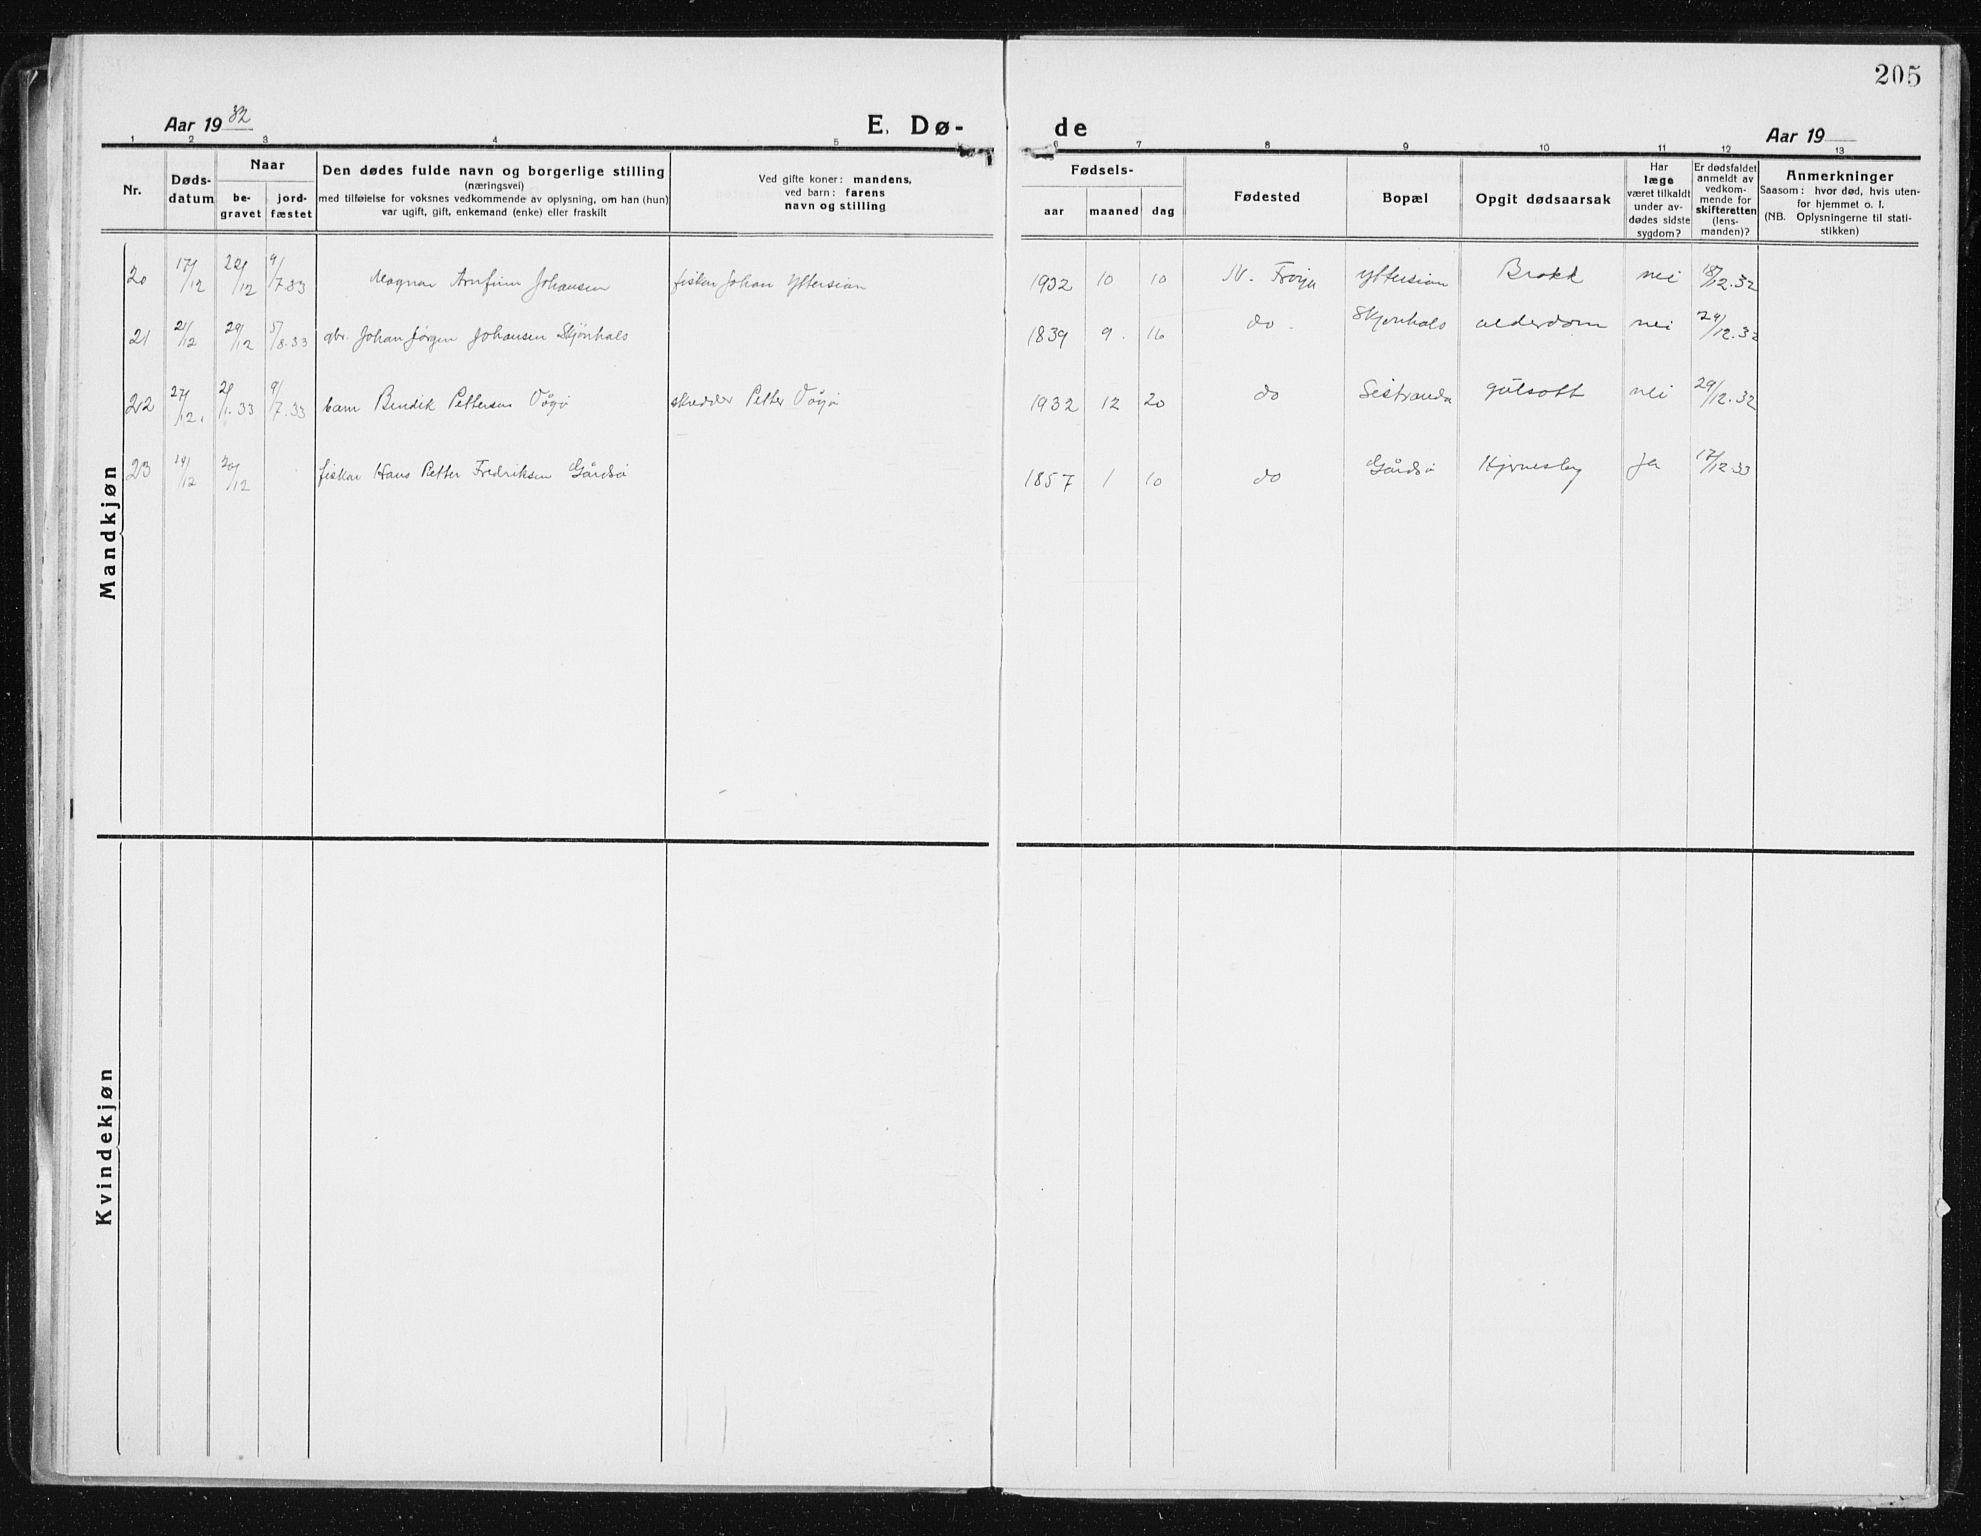 205
Aar 1932
E. Dø-
de
Aar 19
1 2 3 4 5 6 7 8 9 10 11 12 13
Nr.
Døds-
datum
Naar
be-
gravet
jord-
fæstet
Den dødes fulde navn og borgerlige stilling
(næringsvei)
med tilføielse for voksnes vedkommende av oplysning, om han (hun)
var ugift, gift, enkemand (enke) eller fraskilt
Ved gifte koner: mandens,
ved barn: farens
navn og stilling
Fødsels-
aar maaned dag
Fødested
Bopæl
Opgit dødsaarsak
Har
læge
været tilkaldt
under av-
dødes sidste
sygdom?
Er dødsfaldet
anmeldt av
vedkom-
mende for
skifteretten
(lens-
manden)?
Anmerkninger
Saasom: hvor død, hvis uten-
for hjemmet o. l.
(NB. Oplysningerne til stati-
stikken)
Mandkjøn
20 17/12 22/12 9/7.33 Magnar Arnfinn Johansen fisker Johan Yttersian 1932 10 10 N. Frøya Yttersian Brokk nei 18/12.32
21 21/12 29/12 5/8.33 gbr. Johan Jørgen Johansen Skjønhals 1839 9. 16 do. Skjønhals alderdom nei 24/12.32
22 27/12. 2/1.33 9/7.33 barn Bendik Pettersen skredder Petter 1932 12 20 do Sistranda gulsott nei 29/12.32
23 14/12 20/12 fisker Hans Petter Fredriksen Gårdsø 1857 1 10 do Gårdsø ja 17/12 33
Kvindekjøn